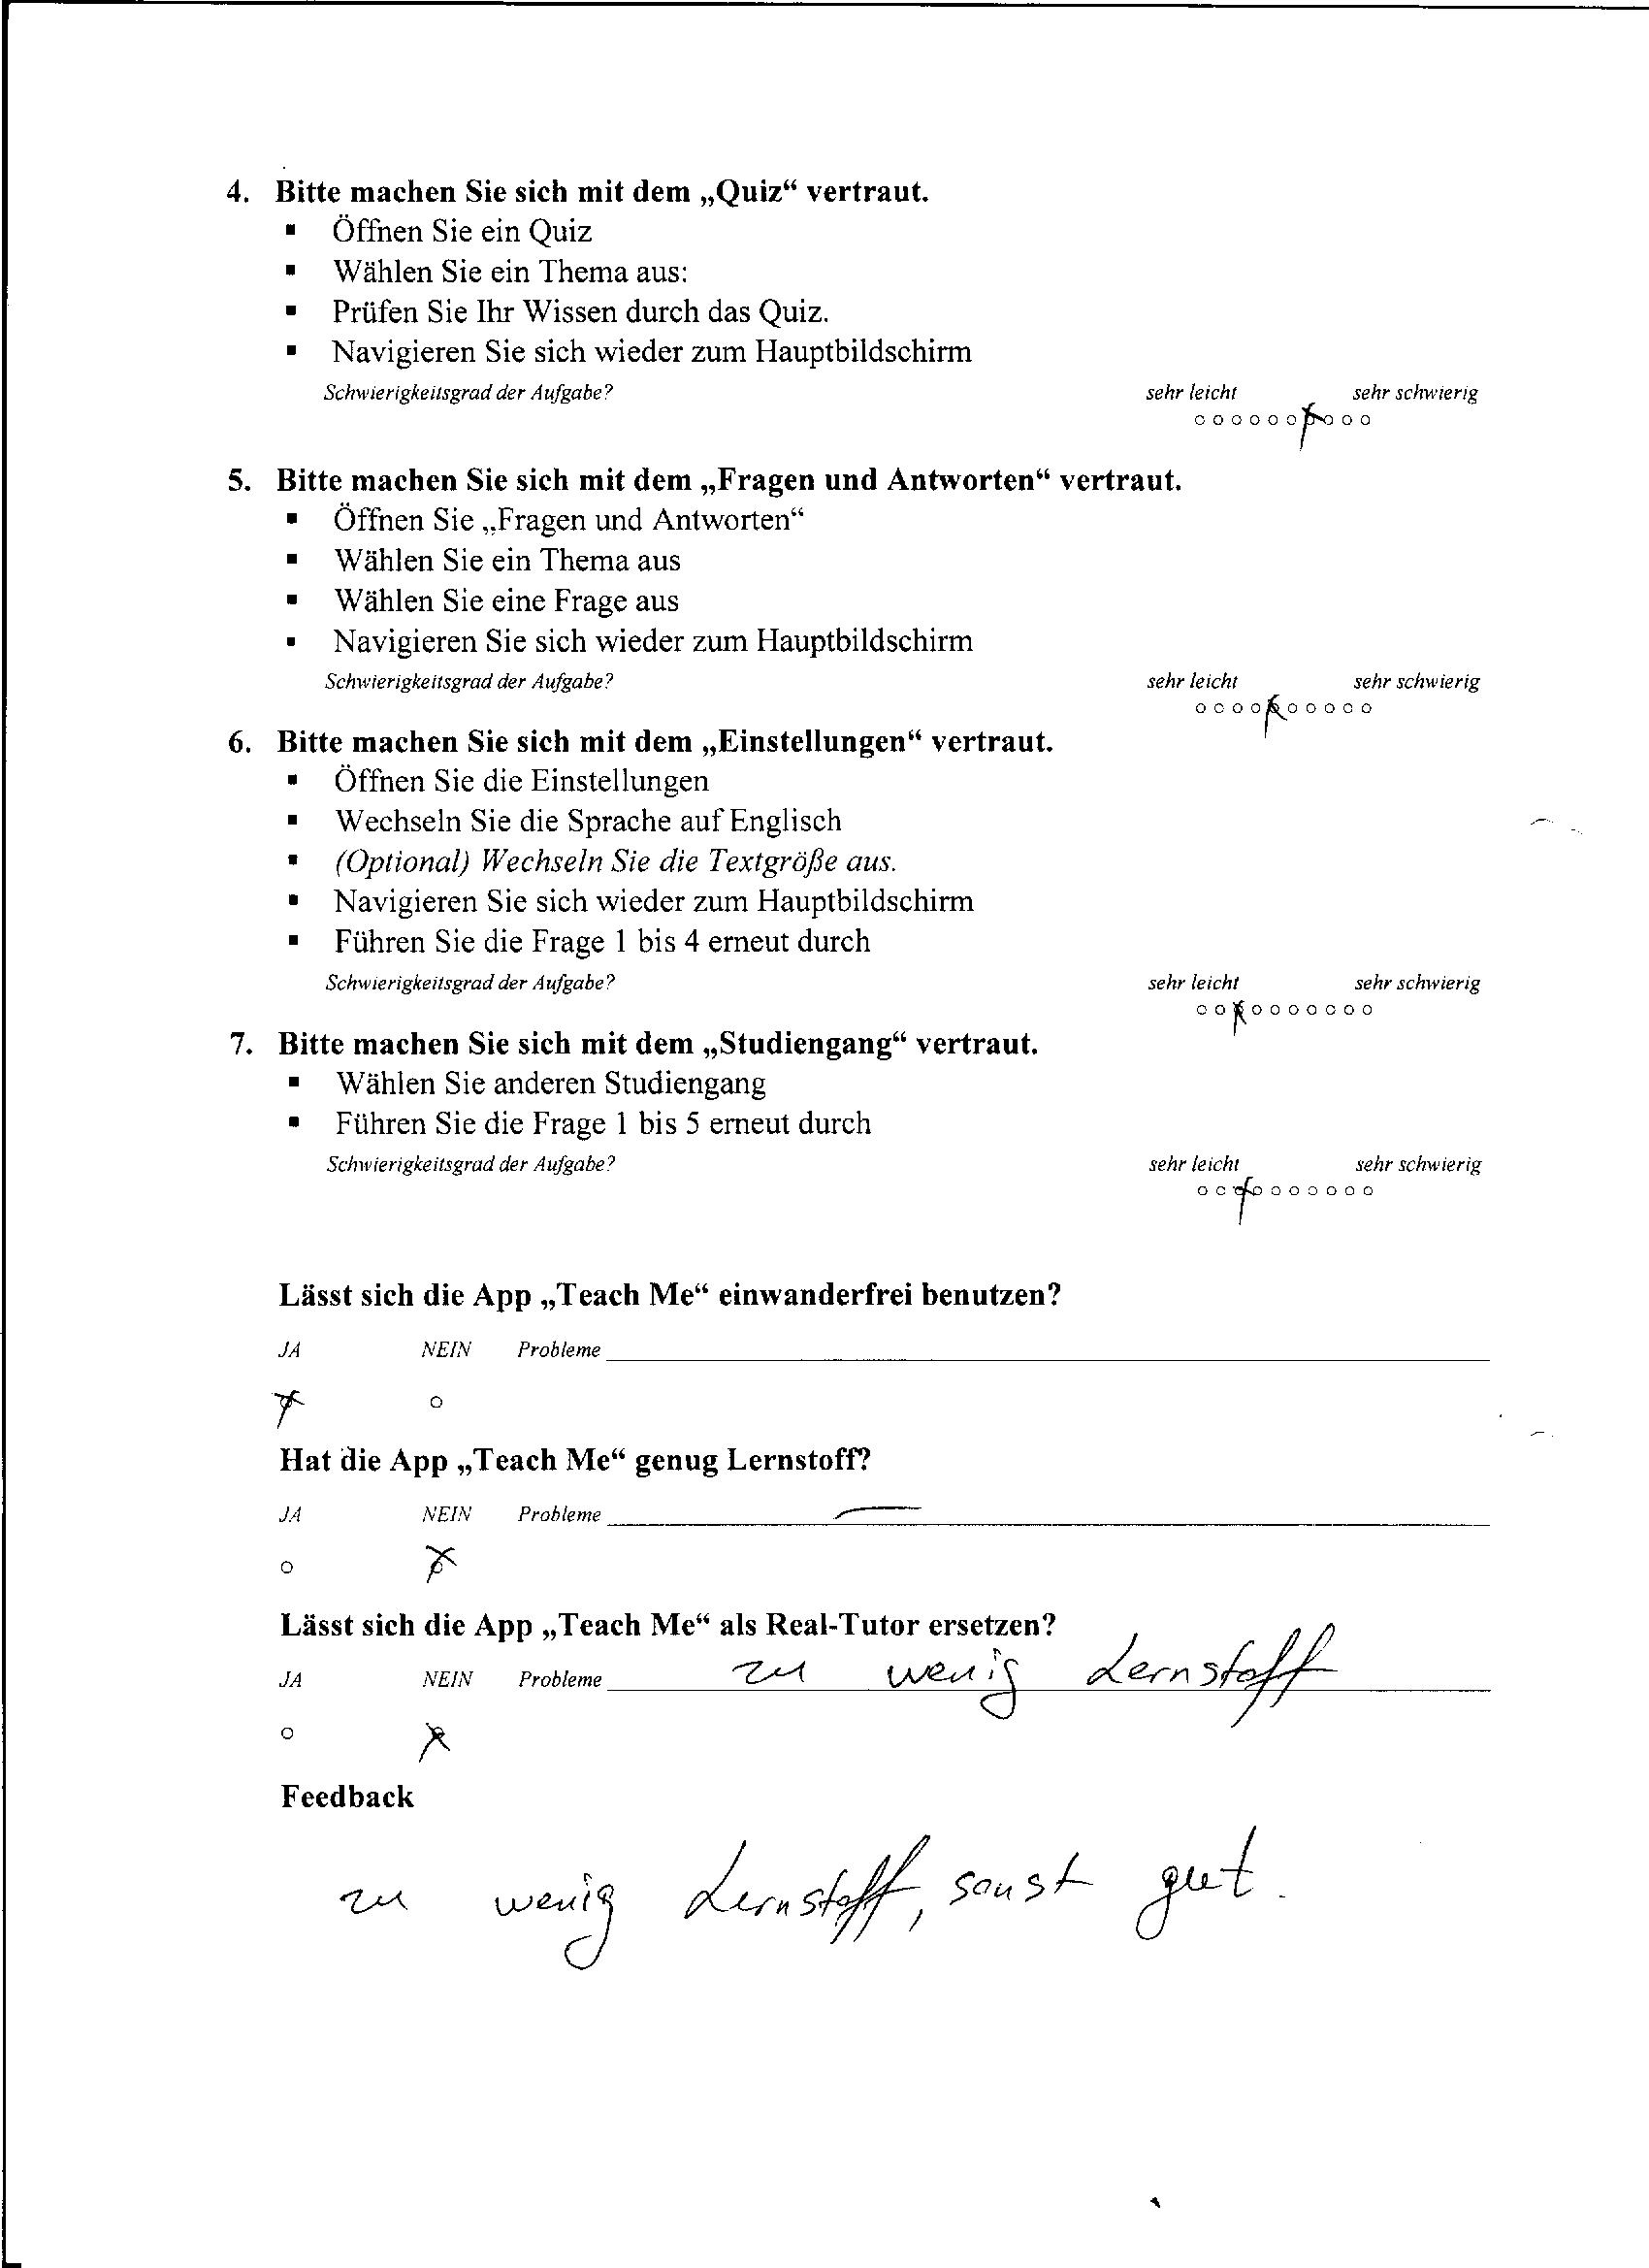 4. Bitte machen Sie sich mit dem „Quiz“ vertraut.
▪ Öffnen Sie ein Quiz
▪ Wählen Sie ein Thema aus:
▪ Prüfen Sie Ihr Wissen durch das Quiz.
▪ Navigieren Sie sich wieder zum Hauptbildschirm
Schwierigkeitsgrad der Aufgabe? sehr leicht sehr schwierig
5. Bitte machen Sie sich mit dem „Fragen und Antworten“ vertraut.
▪ Öffnen Sie „Fragen und Antworten“
▪ Wählen Sie ein Thema aus
▪ Wählen Sie eine Frage aus
▪ Navigieren Sie sich wieder zum Hauptbildschirm
Schwierigkeitsgrad der Aufgabe? sehr leicht sehr schwierig
6. Bitte machen Sie sich mit dem „Einstellungen“ vertraut.
▪ Öffnen Sie die Einstellungen
▪ Wechseln Sie die Sprache auf Englisch
▪ (Optional) Wechseln Sie die Textgröße aus.
▪ Navigieren Sie sich wieder zum Hauptbildschirm
▪ Führen Sie die Frage 1 bis 4 erneut durch
Schwierigkeitsgrad der Aufgabe? sehr leicht sehr schwierig
7. Bitte machen Sie sich mit dem „Studiengang“ vertraut.
▪ Wählen Sie anderen Studiengang
▪ Führen Sie die Frage 1 bis 5 erneut durch
Schwierigkeitsgrad der Aufgabe? sehr leicht sehr schwierig
Lässt sich die App „Teach Me“ einwanderfrei benutzen?
JA NEIN Probleme
Hat die App „Teach Me“ genug Lernstoff?
JA NEIN Probleme
Lässt sich die App „Teach Me“ als Real-Tutor ersetzen?
JA NEIN Probleme zu wenig Lernstoff
Feedback
zu wenig Lernstoff, sonst gut.